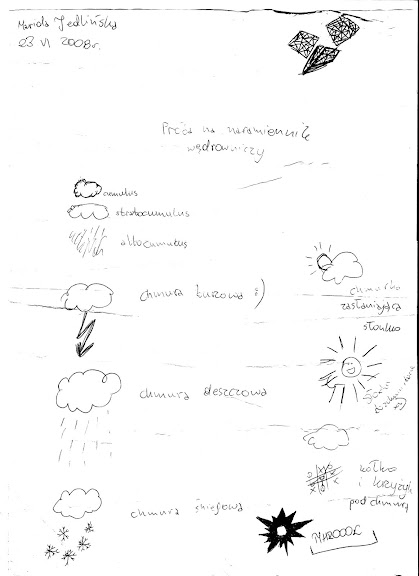 Mariola Jedlińska
23 VI 2008r.
Próba na naramiennik
wędrowniczy
cumulus
stratocumulus
altocumulus
chmura burzowa :)
chmurka
zasłaniająca
słonko
chmura deszczowa
kółko
i krzyżyk
pod chmurą
chmura śniegowa